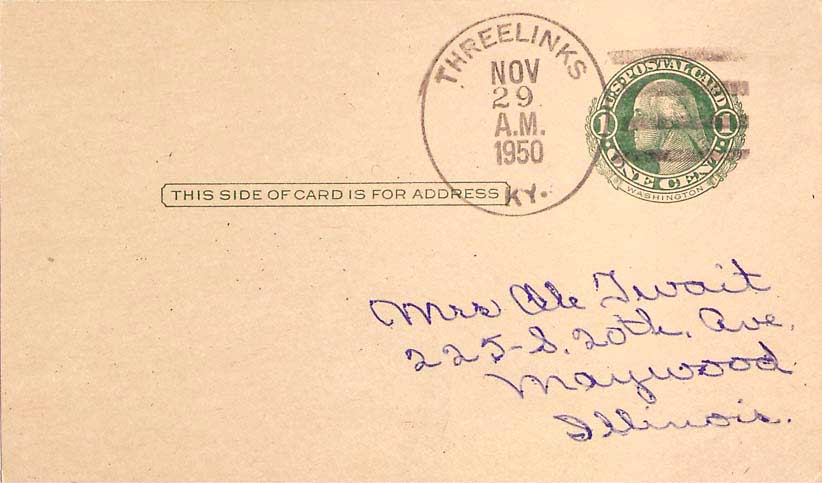 THREELINKS
NOV
29
A.M.
1950
KY.
U.S. POSTAL CARD
1 1
ONE CENT
WASHINGTON
THIS SIDE OF CARD IS FOR ADDRESS
Mrs Ole Twait
225-S. 20th. Ave.
Maywood
Illinois.